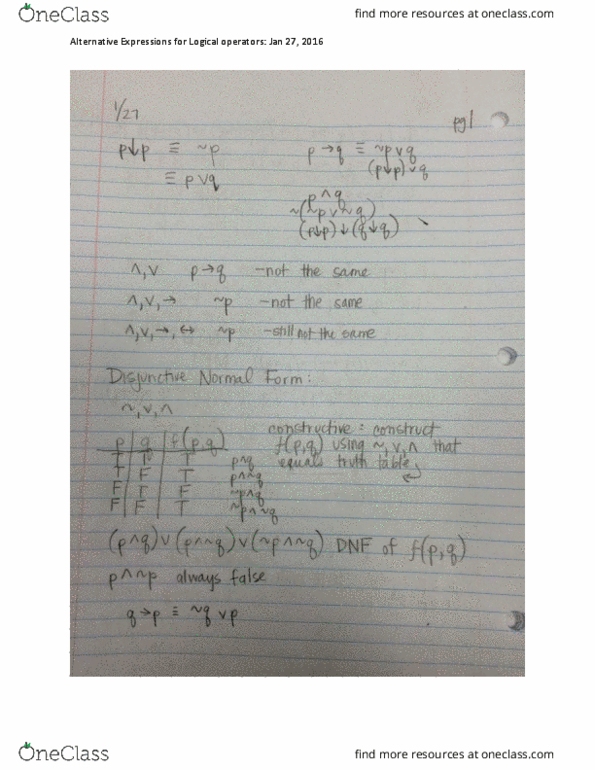 OneClass
find more resources at oneclass.com
Alternative Expressions for Logical operators: Jan 27, 2016
1/27
pg 1
p↓p ≡ ~p
p→q ≡ ~p∨q
(p↓p)∨q
≡ p∨q
p∧q
~(~p∨~q)
(p↓p)↓(q↓q)
∧,∨ p→q -not the same
∧,∨,→ ~p -not the same
∧,∨,→,↔ ~p -still not the same
Disjunctive Normal Form:
~,∨,∧
constructive: construct
f(p,q) using ~,∨,∧ that
equals truth table
p q f(p,q)
T T T p∧q
T F T p∧~q
F T F ~p∧q
F F T ~p∧~q
(p∧q)∨(p∧~q)∨(~p∧~q) DNF of f(p,q)
p∧~p always false
q→p ≡ ~q∨p
OneClass
find more resources at oneclass.com